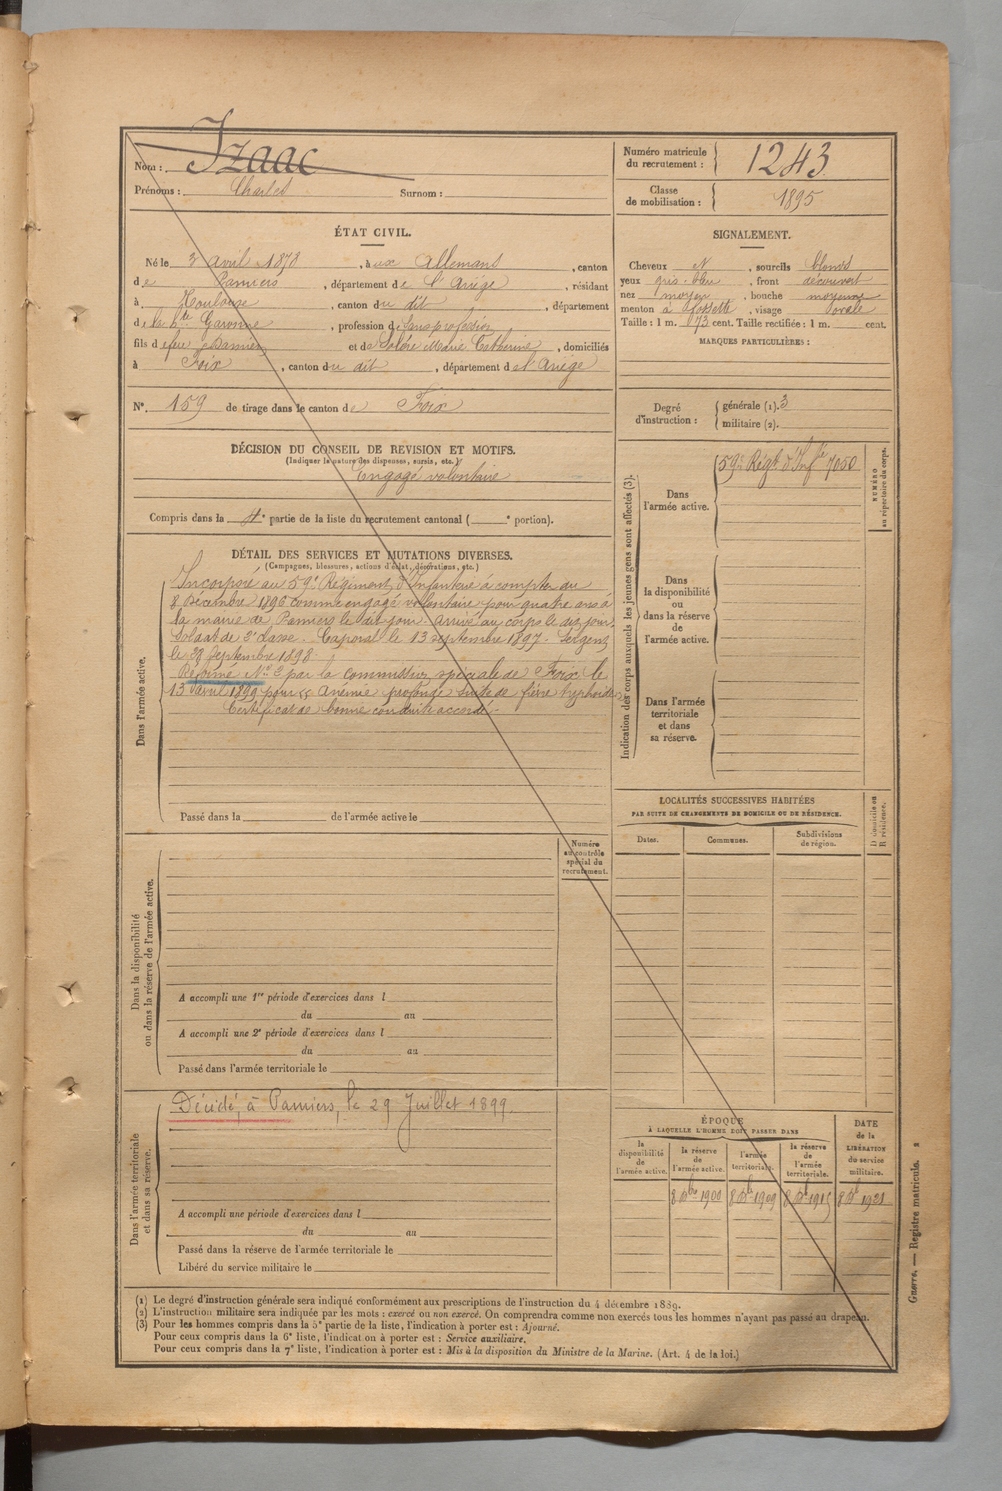 Nom : Izaac
Prénoms : Charles Surnom :
Numéro matricule du recrutement : 1243
Classe de mobilisation : 1895
ÉTAT CIVIL.
Né le 3 avril 1878, à aux Allemans, canton
de Pamiers, département de l'Ariège, résidant
à Toulouse, canton du dit, département
de la Hte Garonne, profession de Sans profession
fils de feu Damien et de Marie Catherine, domiciliés
à Foix, canton du dit, département de l'Ariège
N° 159 de tirage dans le canton de Foix
SIGNALEMENT.
Cheveux et, sourcils blonds
yeux gris-bleu, front découvert
nez moyen, bouche moyenne
menton à fossette, visage ovale
Taille : 1 m. 73 cent. Taille rectifiée : 1 m. cent.
MARQUES PARTICULIÈRES :
Degré d'instruction : générale (1). 3
militaire (2).
DÉCISION DU CONSEIL DE REVISION ET MOTIFS.
(Indiquer la nature des dispenses, sursis, etc.)
Engagé volontaire
Compris dans la 4e partie de la liste du recrutement cantonal ( e portion).
DÉTAIL DES SERVICES ET MUTATIONS DIVERSES.
(Campagnes, blessures, actions d'éclat, décorations, etc.)
Dans l'armée active.
Incorporé au 59e Régiment d'Infanterie à compter du
8 Décembre 1896 comme engagé volontaire pour quatre ans à
la mairie de Pamiers le dit jour. Arrivé au corps le dit jour.
Soldat de 2e classe. Caporal le 13 septembre 1897. Sergent
le 28 Septembre 1898.
Réformé N° 2 par la commission spéciale de Foix le
13 avril 1899 pour "Anémie profonde suite de fièvre typhoïde"
Certificat de bonne conduite accordé.
Passé dans la de l'armée active le
Indication des corps auxquels les jeunes gens sont affectés (3).
NUMÉRO au répertoire du corps.
Dans l'armée active.
59e Régt d'Infie 7050
Dans la disponibilité ou dans la réserve de l'armée active.
Dans l'armée territoriale et dans sa réserve.
LOCALITÉS SUCCESSIVES HABITÉES
PAR SUITE DE CHANGEMENTS DE DOMICILE OU DE RÉSIDENCE.
Dates. Communes. Subdivisions de région.
D domicile ou R résidence.
Numéro au contrôle spécial du recrutement.
Dans la disponibilité ou dans la réserve de l'armée active.
A accompli une 1re période d'exercices dans l
du au
A accompli une 2e période d'exercices dans l
du au
Passé dans l'armée territoriale le
Dans l'armée territoriale et dans sa réserve.
Décédé, à Pamiers, le 29 Juillet 1899.
A accompli une période d'exercices dans l
du au
Passé dans la réserve de l'armée territoriale le
Libéré du service militaire le
ÉPOQUE
À LAQUELLE L'HOMME DOIT PASSER DANS
la disponibilité de l'armée active.
la réserve de l'armée active.
l'armée territoriale.
la réserve de l'armée territoriale.
DATE de la LIBÉRATION du service militaire.
8 Xbre 1900
(1) Le degré d'instruction générale sera indiqué conformément aux prescriptions de l'instruction du 4 décembre 1889.
(2) L'instruction militaire sera indiquée par les mots : exercé ou non exercé. On comprendra comme non exercés tous les hommes n'ayant pas passé au drapeau.
(3) Pour les hommes compris dans la 5e partie de la liste, l'indication à porter est : Ajourné.
Pour ceux compris dans la 6e liste, l'indication à porter est : Service auxiliaire.
Pour ceux compris dans la 7e liste, l'indication à porter est : Mis à la disposition du Ministre de la Marine. (Art. 4 de la loi.)
Guerre. — Registre matricule.